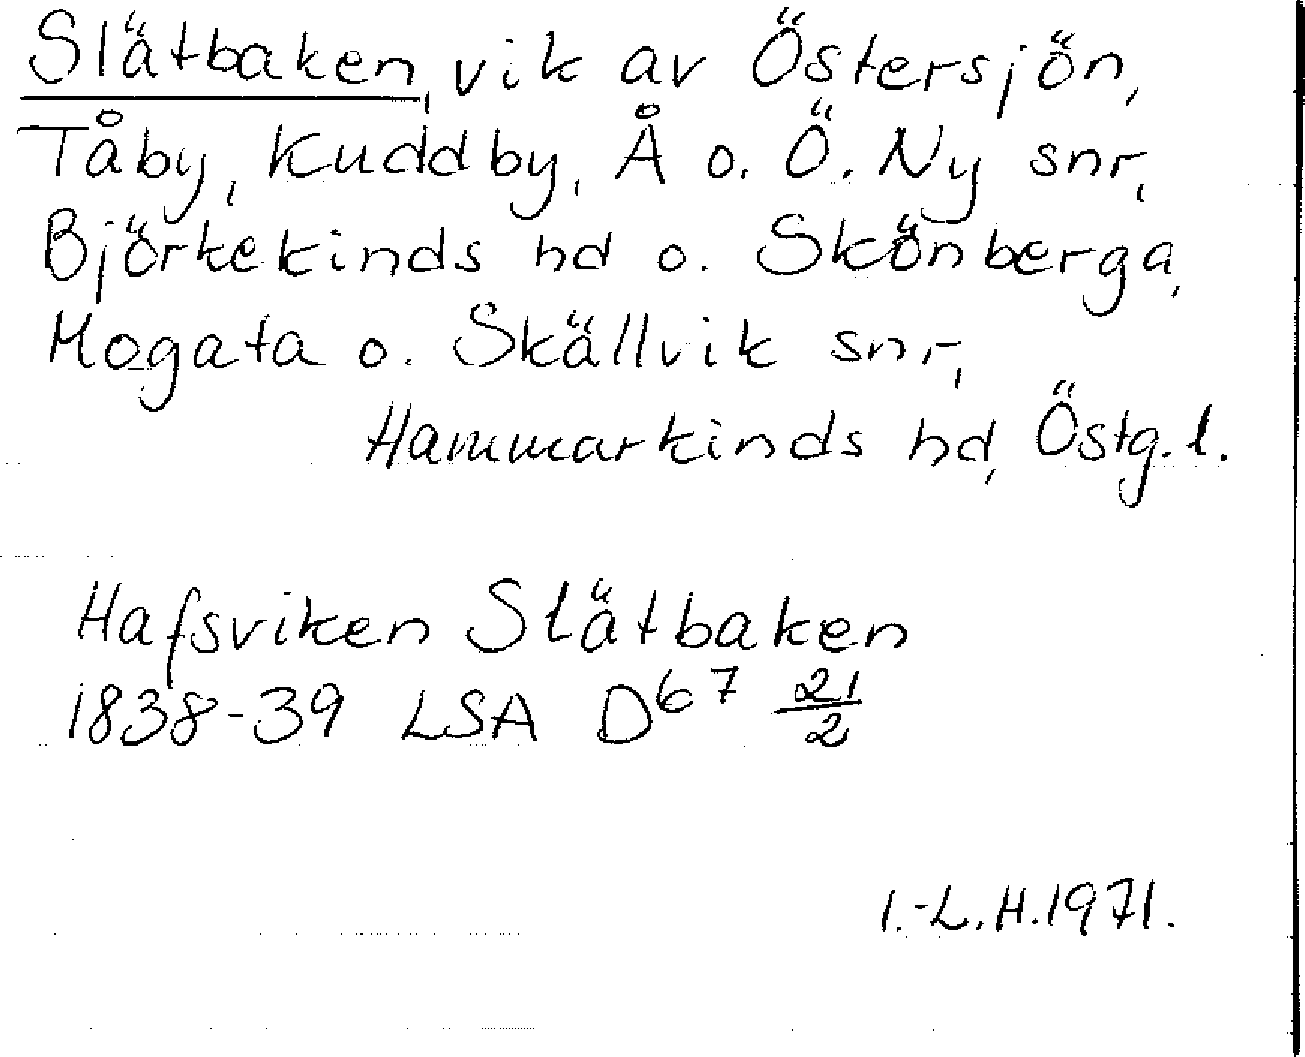 Slätbaken, vik av Östersjön,
Tåby, Kuddby, Å o. Ö. Ny snr,
Björkekinds hd o. Skönberga,
Mogata o. Skällvik snr,
Hammarkinds hd, Östg. l.
Hafsviken Slätbaken
1838-39 LSA D67 21/2
I.-L.H.1971.